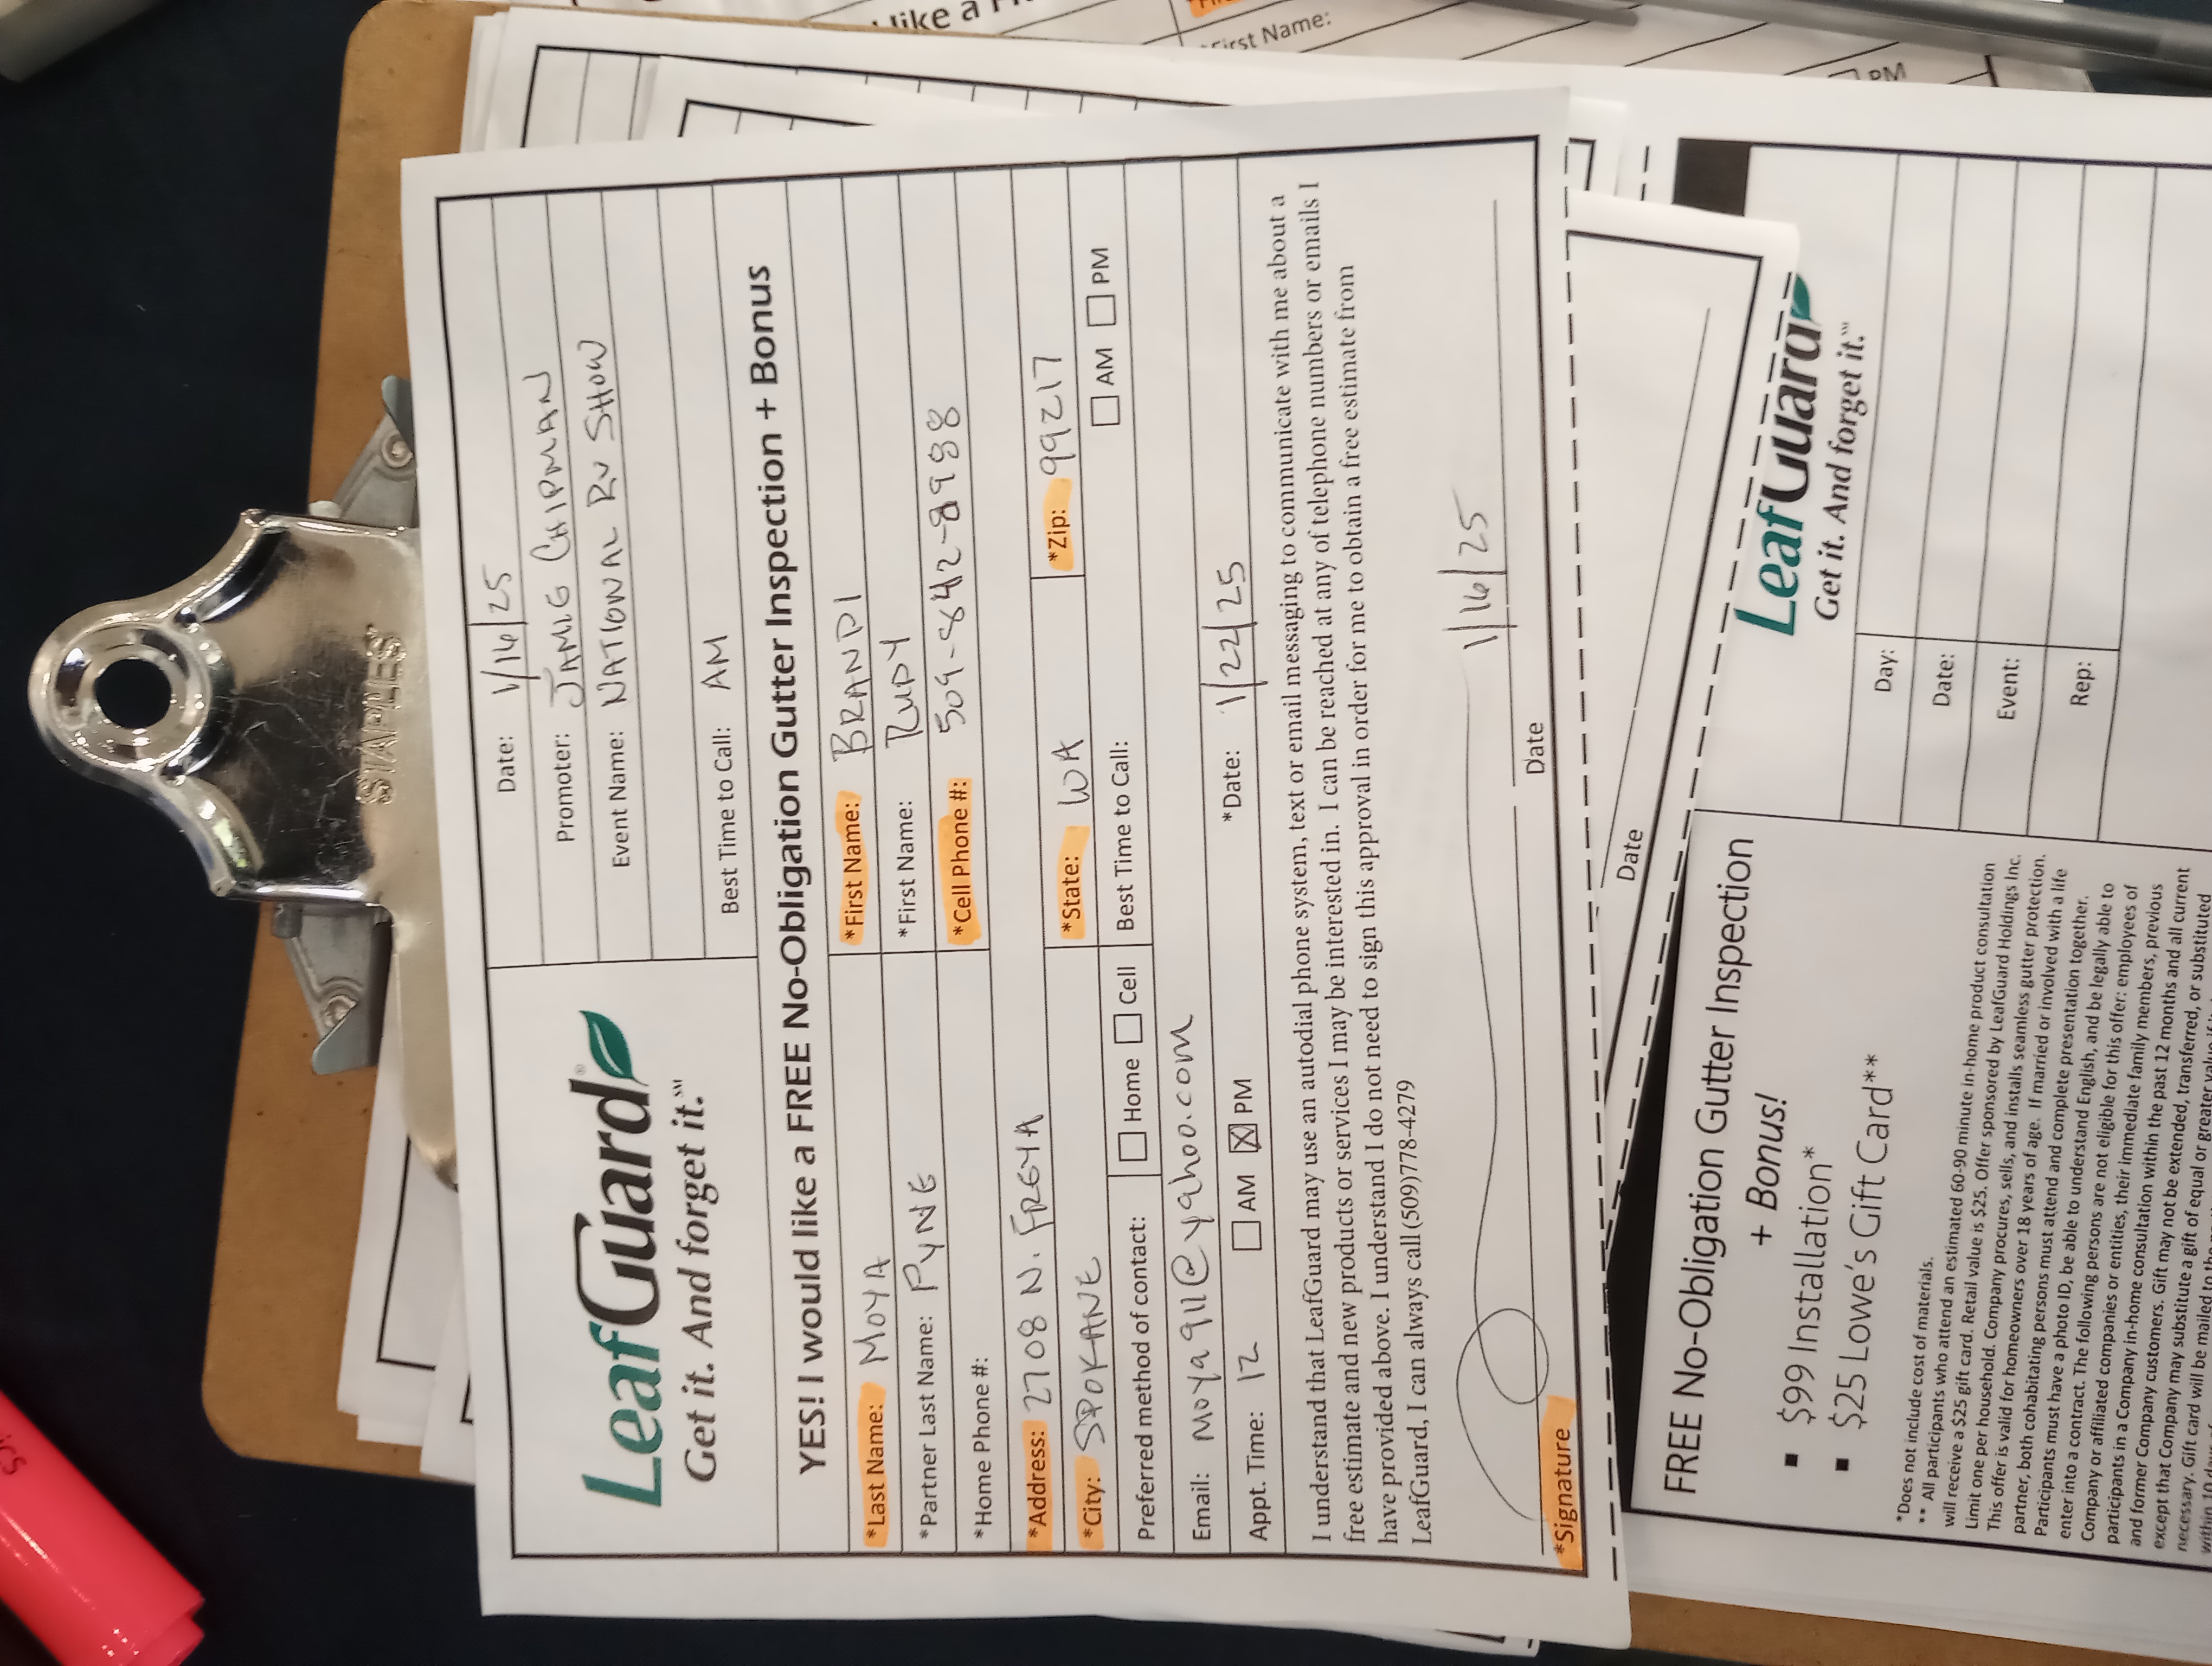 STAPLES
LeafGuard®
Get it. And forget it.℠
Date: 1/16/25
Promoter: JAMIE CHIPMAN
Event Name: NATIONAL RV SHOW
Best Time to Call: AM
YES! I would like a FREE No-Obligation Gutter Inspection + Bonus
*Last Name: MOYA *First Name: BRANDI
*Partner Last Name: PYNE *First Name: RUDY
*Home Phone #: *Cell Phone #: 509-842-8988
*Address: 2708 N. FREYA
*City: SPOKANE *State: WA *Zip: 99217
Preferred method of contact: Home Cell Best Time to Call: AM PM
Email: moya911@yahoo.com
Appt. Time: 12 AM X PM *Date: 1/22/25
I understand that LeafGuard may use an autodial phone system, text or email messaging to communicate with me about a
free estimate and new products or services I may be interested in. I can be reached at any of telephone numbers or emails I
have provided above. I understand I do not need to sign this approval in order for me to obtain a free estimate from
LeafGuard, I can always call (509)778-4279
1/16/25
*Signature Date
Date
FREE No-Obligation Gutter Inspection
+ Bonus!
▪ $99 Installation*
▪ $25 Lowe's Gift Card**
*Does not include cost of materials.
** All participants who attend an estimated 60-90 minute in-home product consultation
will receive a $25 gift card. Retail value is $25. Offer sponsored by LeafGuard Holdings Inc.
Limit one per household. Company procures, sells, and installs seamless gutter protection.
This offer is valid for homeowners over 18 years of age. If married or involved with a life
partner, both cohabitating persons must attend and complete presentation together.
Participants must have a photo ID, be able to understand English, and be legally able to
enter into a contract. The following persons are not eligible for this offer: employees of
Company or affiliated companies or entities, their immediate family members, previous
participants in a Company in-home consultation within the past 12 months and all current
and former Company customers. Gift may not be extended, transferred, or substituted
except that Company may substitute a gift of equal or greater value if
necessary. Gift card will be mailed to the
within 10
LeafGuard
Get it. And forget it.℠
Day:
Date:
Event:
Rep:
like a
First Name:
PM